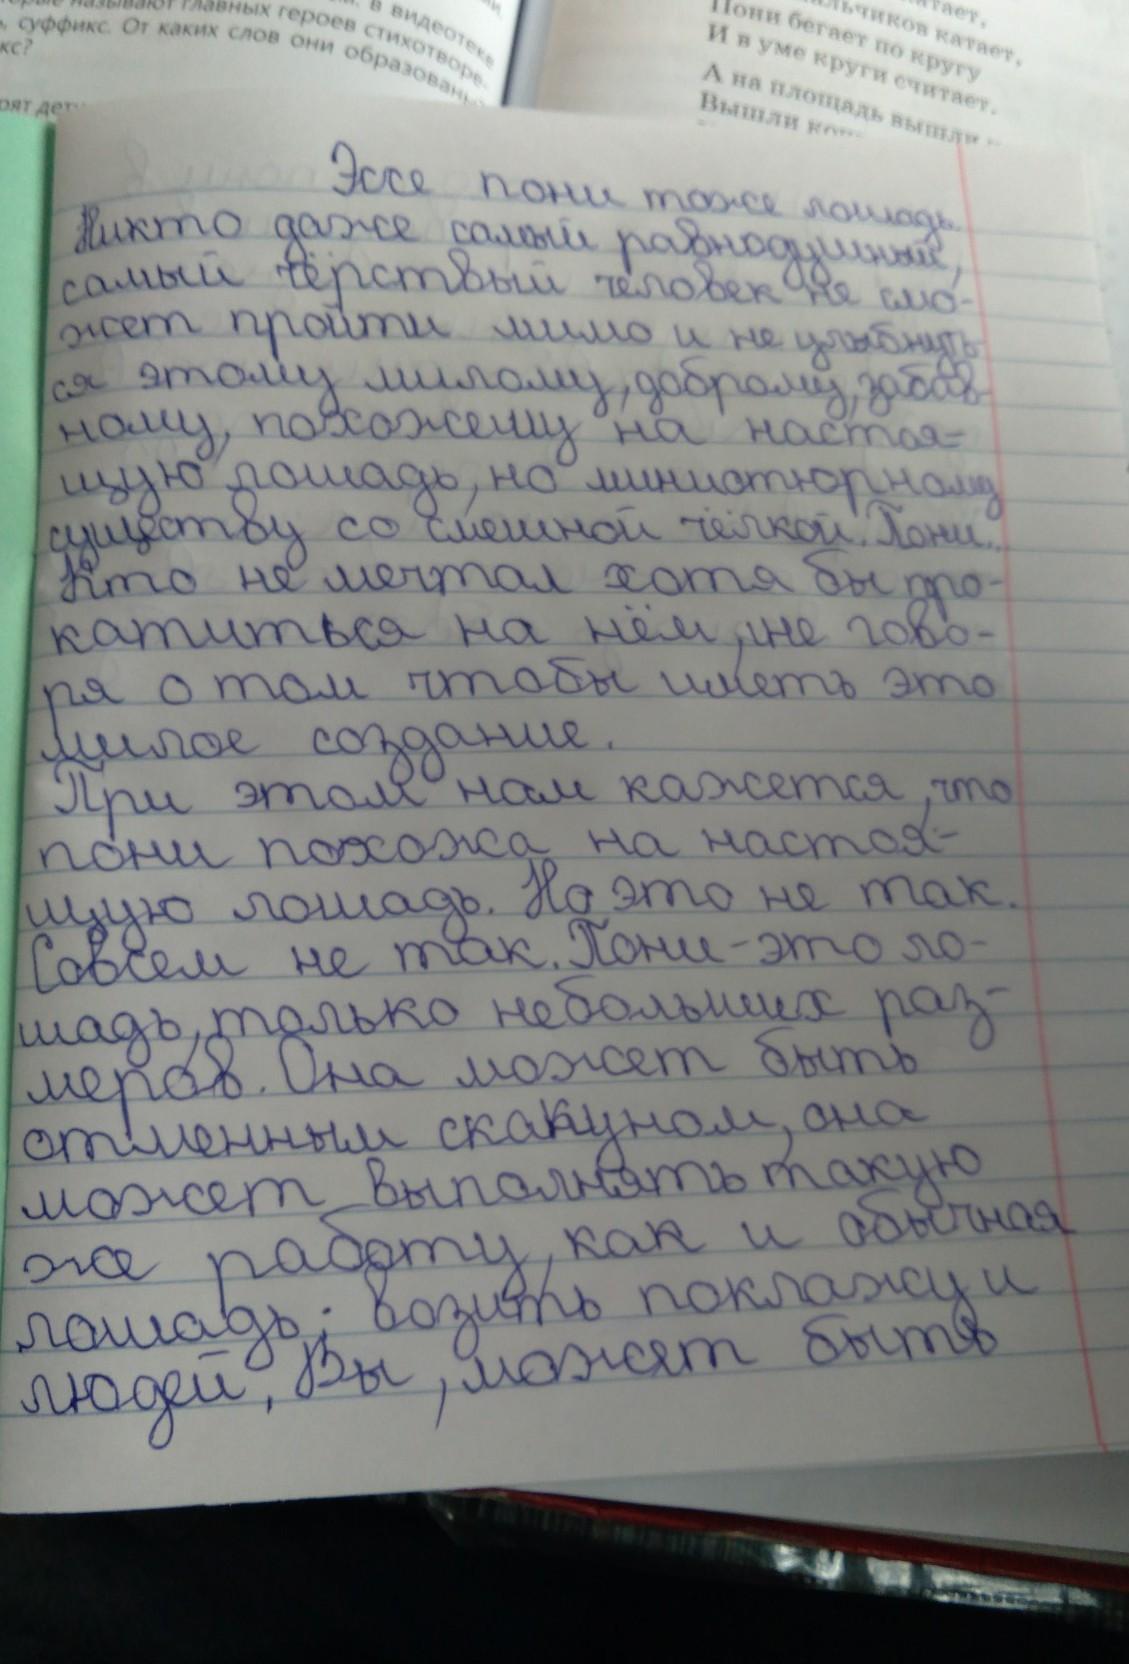 называют главных героев стихотворе-
в видеотеке
суффикс. От каких слов они образованы
кс?
рят дет
катает,
льчиков катает,
Пони бегает по кругу
И в уме круги считает.
А на площадь вышли
Вышли
Эссе пони тоже лошадь.
Никто даже самый равнодушный,
самый чёрствый человек не смо-
жет пройти мимо и не улыбнуть-
ся этому милому, доброму, забав-
ному, похожему на настоя-
щую лошадь, но миниатюрному
существу со смешной чёлкой. Пони..
Кто не мечтал хотя бы про-
катиться на нём, не гово-
ря о том чтобы иметь это
милое создание.
При этом нам кажется, что
пони похожа на настоя-
щую лошадь. Но это не так.
Совсем не так. Пони - это ло-
шадь, только небольших раз-
меров. Она может быть
отменным скакуном, она
может выполнять такую
же работу, как и обычная
лошадь: возить поклажу и
людей, Вы, может быть